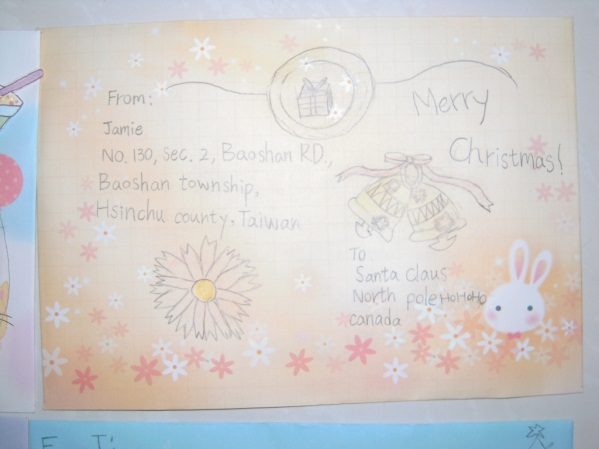 From:
Jamie
No. 130, Sec. 2, Baoshan RD.,
Baoshan township,
Hsinchu county, Taiwan
Merry
Christmas!
To
Santa Claus
North pole HoHoHo
canada